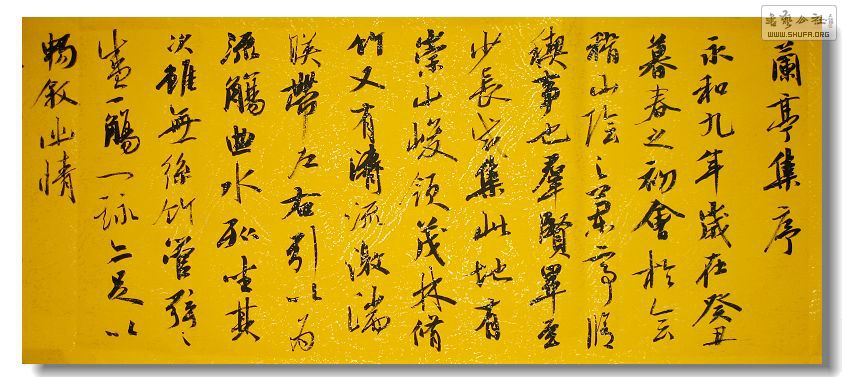 蘭亭集序
永和九年歲在癸丑
暮春之初會於会
稽山陰之蘭亭脩
禊事也羣賢畢至
少長咸集此地有
崇山峻領茂林脩
竹又有清流激湍
暎帶左右引以為
流觴曲水列坐其
次雖無絲竹管弦之
盛一觴一詠亦足以
暢敘幽情
WWW.SHUFA.ORG